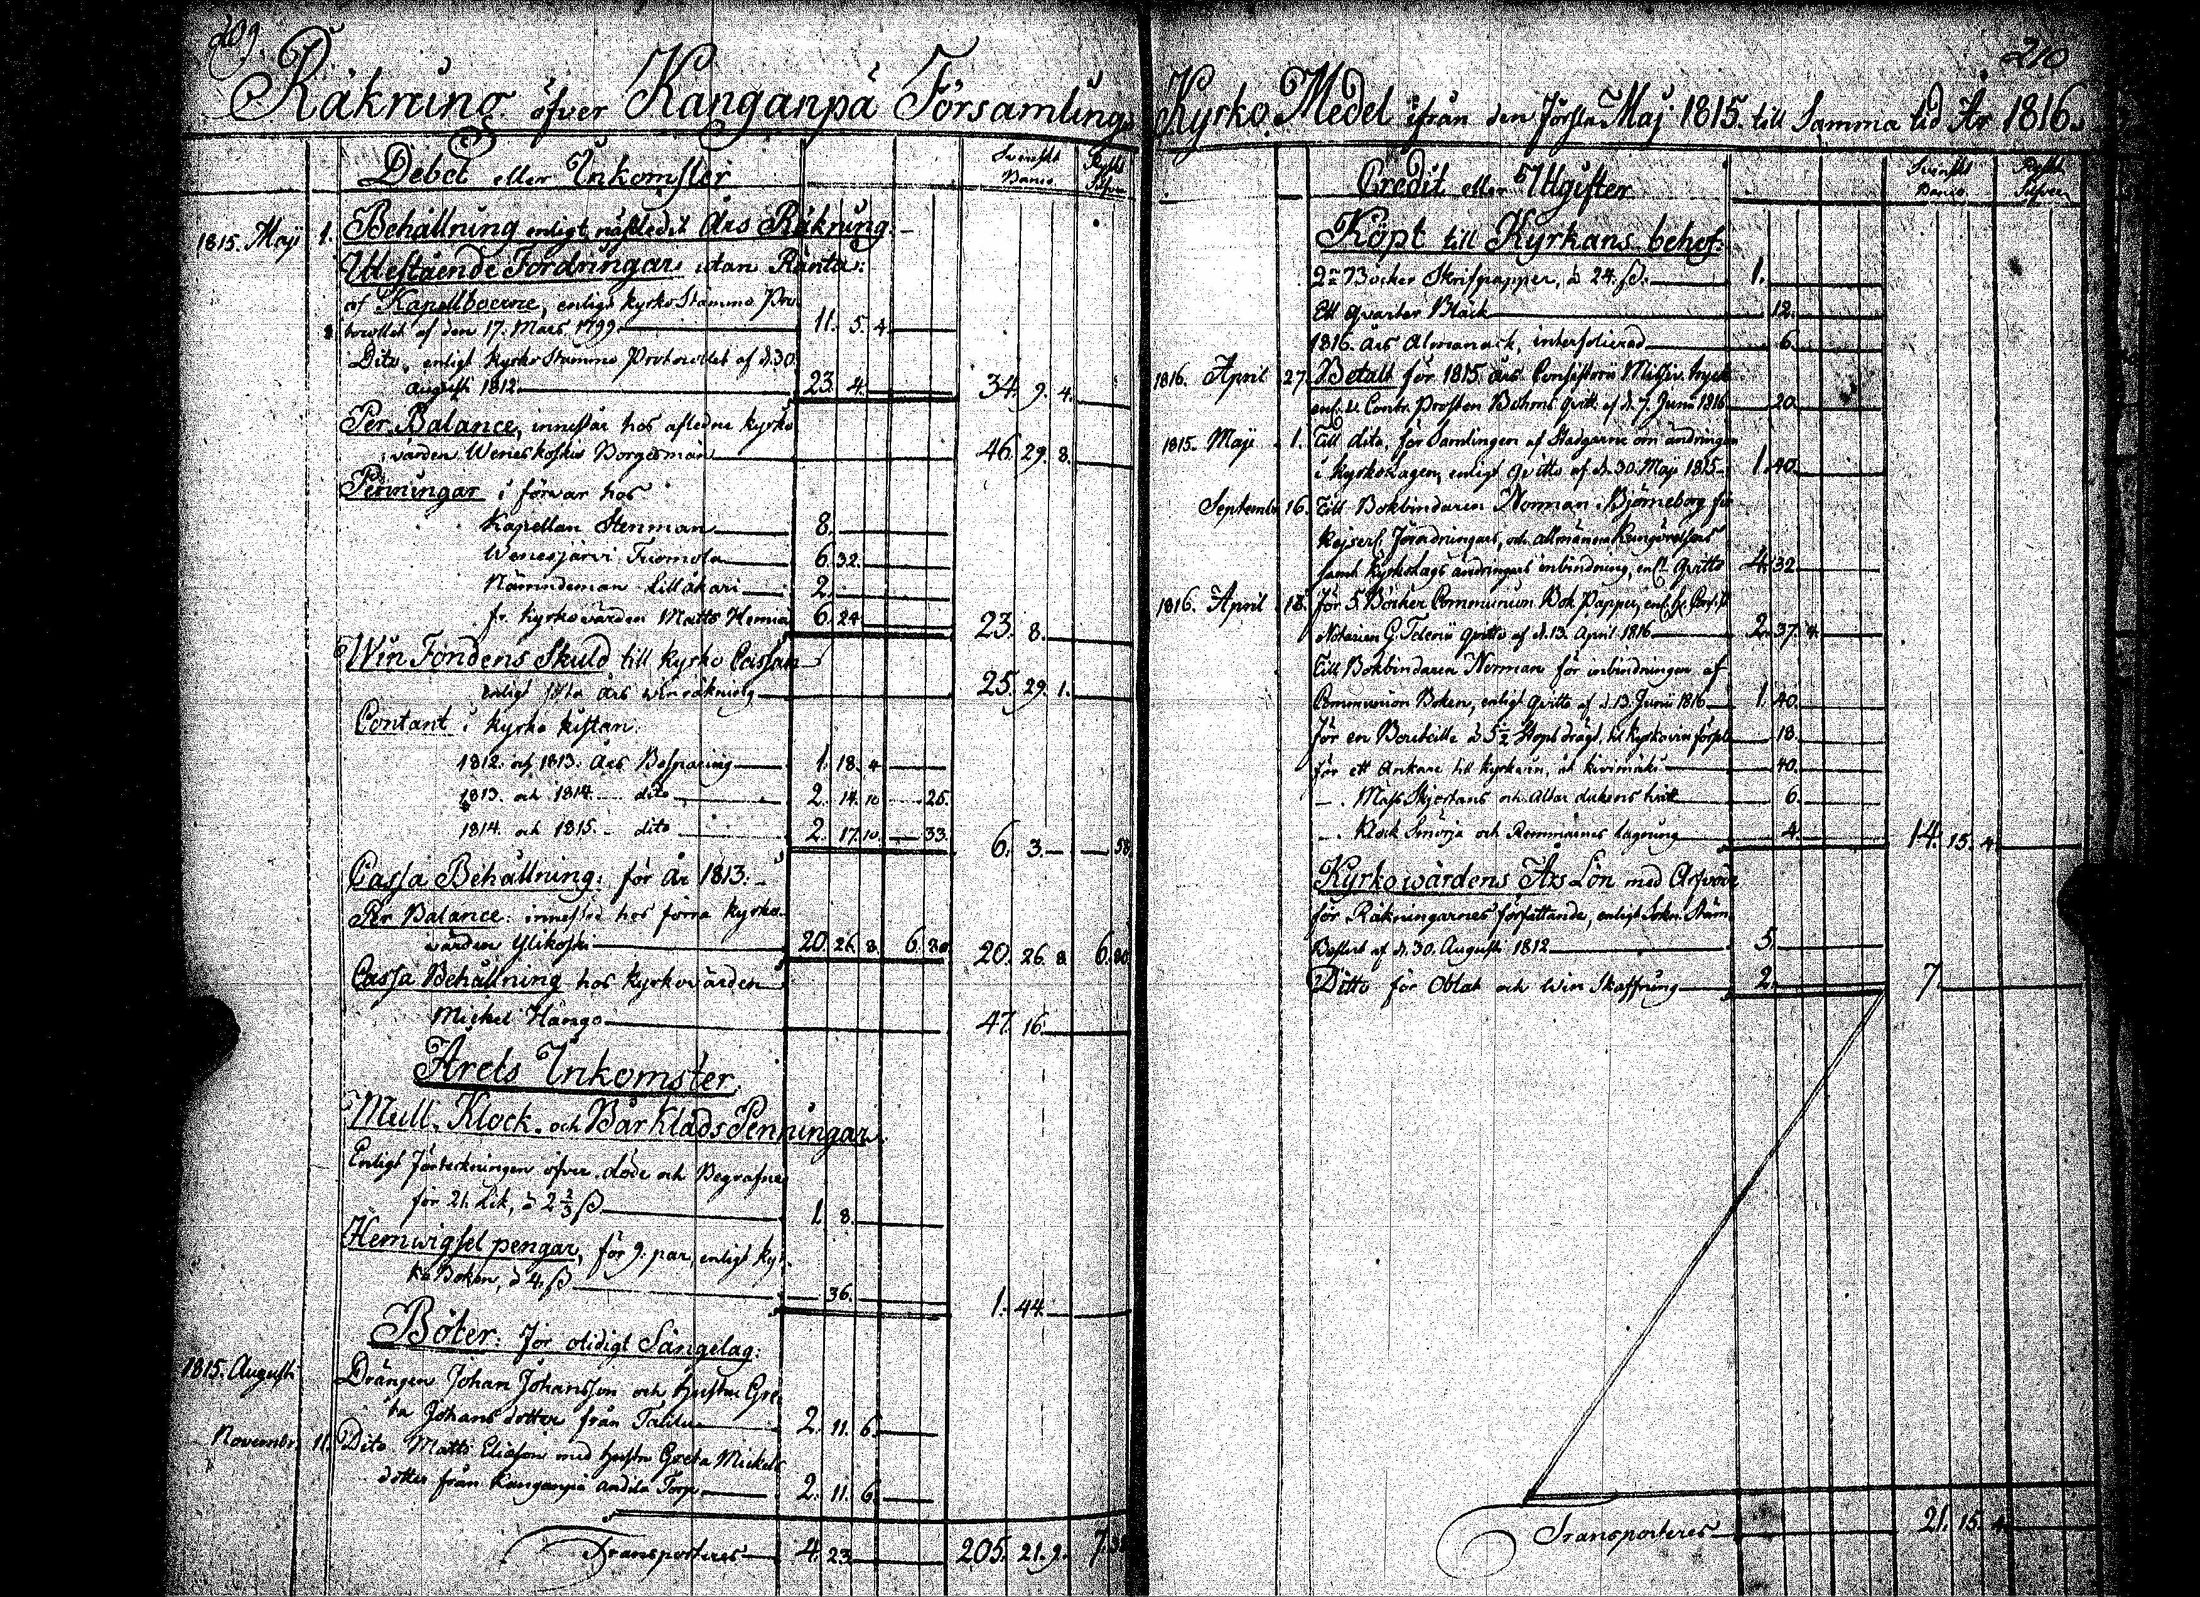 209.
Räkning öfver Kanganpä Församlings
Debet eller Inkomster
Svenskt Banco
Ryskt Silfver
1815. Maji 1. Behållning enligt nästledit Års Räkning.
Utestående Fordringar utan Ränta:
af Kapellboerne, enligt Kyrko Stämmo Pro-
tocollet af den 17. Mars 1799 11. 5. 4.
Dito, enligt Kyrko Stämmo Protocollet af d. 30
Augusti 1812 23. 4. 34. 9. 4.
Per Balance, innestår hos afledne Kyrko
värden Weneskoskis Borgesmän 46. 29. 8.
Penningar i förvar hos
Kapellan Stenman 8.
Wenesjärvi Tuomola 6. 32.
Nämndeman Lillåkari 2.
fr. Kyrkovärden Matts Hemiä 6. 24 23. 8.
Win Fondens Skuld till Kyrko Cassan
enligt Års winräkning 25. 29. 1.
Contant i Kyrko kistan:
1812. och 1813. Års Besparing 1. 18. 4
1813. och 1814. dito 2. 14. 10 25.
1814. och 1815. dito 2. 17. 10. 33. 6. 3. 58.
Cassa Behållning: för År 1813.
Per Balance: hos förra Kyrko-
värden Ylikoski 20. 26. 8. 6. 80 20. 26. 8 6. 80
Cassa Behållning hos Kyrkovärden
Mickel Hångo 47. 16.
Årets Inkomster.
Mull, Klock, och Bårklads Penningar.
Enligt Förteckningen öfver döde och Begrafne
för 21. Lik, à 2 2/3 ß 1. 8.
Hemwigsel pengar, för 9. par, enligt Kyr-
ko Boken, à 4. ß 36. 1. 44.
Böter: För otidigt Sängelag:
1815. Augusti Drängen Johan Johansson och hustru Gre-
ta Johans dotter från 2. 11. 6.
Novembr. 11. Dito Matts Eliasson med hustru Greta Mickels
dotter från Kanganpä Andila Torp 2. 11. 6.
Transporteres 4. 23 205. 21. 9. 7. 38
210
Kyrko Medel ifrån den Första Maj 1815. till Samma tid År 1816.
Credit eller Utgifter
Svenskt Banco
Ryskt Silfver
Köpt till Kyrkans behof:
2ne Böcker Skrifpapper, à 24. ß. 1.
Ett qvarter Bläck 12.
1816. års Almanach, interfolierad 6.
1816. April 27. Betalt för 1815. års Consistorii Missiv.
enl. Contr. Prosten qvitt. af d. 7. Junii 1816 20.
1815. Maji 1. Till dito, för Samlingen af Stadgarne om ändringen
i Kyrko Lagen, enligt qvitto af d. 30. Maji 1815. 1. 40.
Septembr. 16. Till Bokbindaren Norman i Björneborg för
Kejserl. Förordningars, och allmänna Kungörelsers
samt Kyrkolags ändringars inbindning, enl. qvitto 4. 32
1816. April 18. För 5. Böcker Communion Bok Papper, enl. Consist.
Notarien G. qvitto af d. 13. April 1816 2. 37. 4.
Till Bokbindaren Norman för inbindningen af
Communion Boken, enligt qvitto af d. 13. Junii 1816 1. 40.
För en Bouteille à 5 1/2 Stops drägt, til Kyrkovin 18.
för ett Ankare til Kyrkvin, åt Kivimäki 40.
Mass Skjortans och Altar dukens tvätt 6.
Klock Smörja och Remmarnes lagning 4. 14. 15. 4.
Kyrkowärdens Års Lön med Arfvode
för Räkningarnes författande, enligt Sokn. Stäm.
Beslut af d. 30. Augusti 1812 5.
Ditto för Oblat och Win Skaffning 2. 7.
Transporteres 21. 15. 4